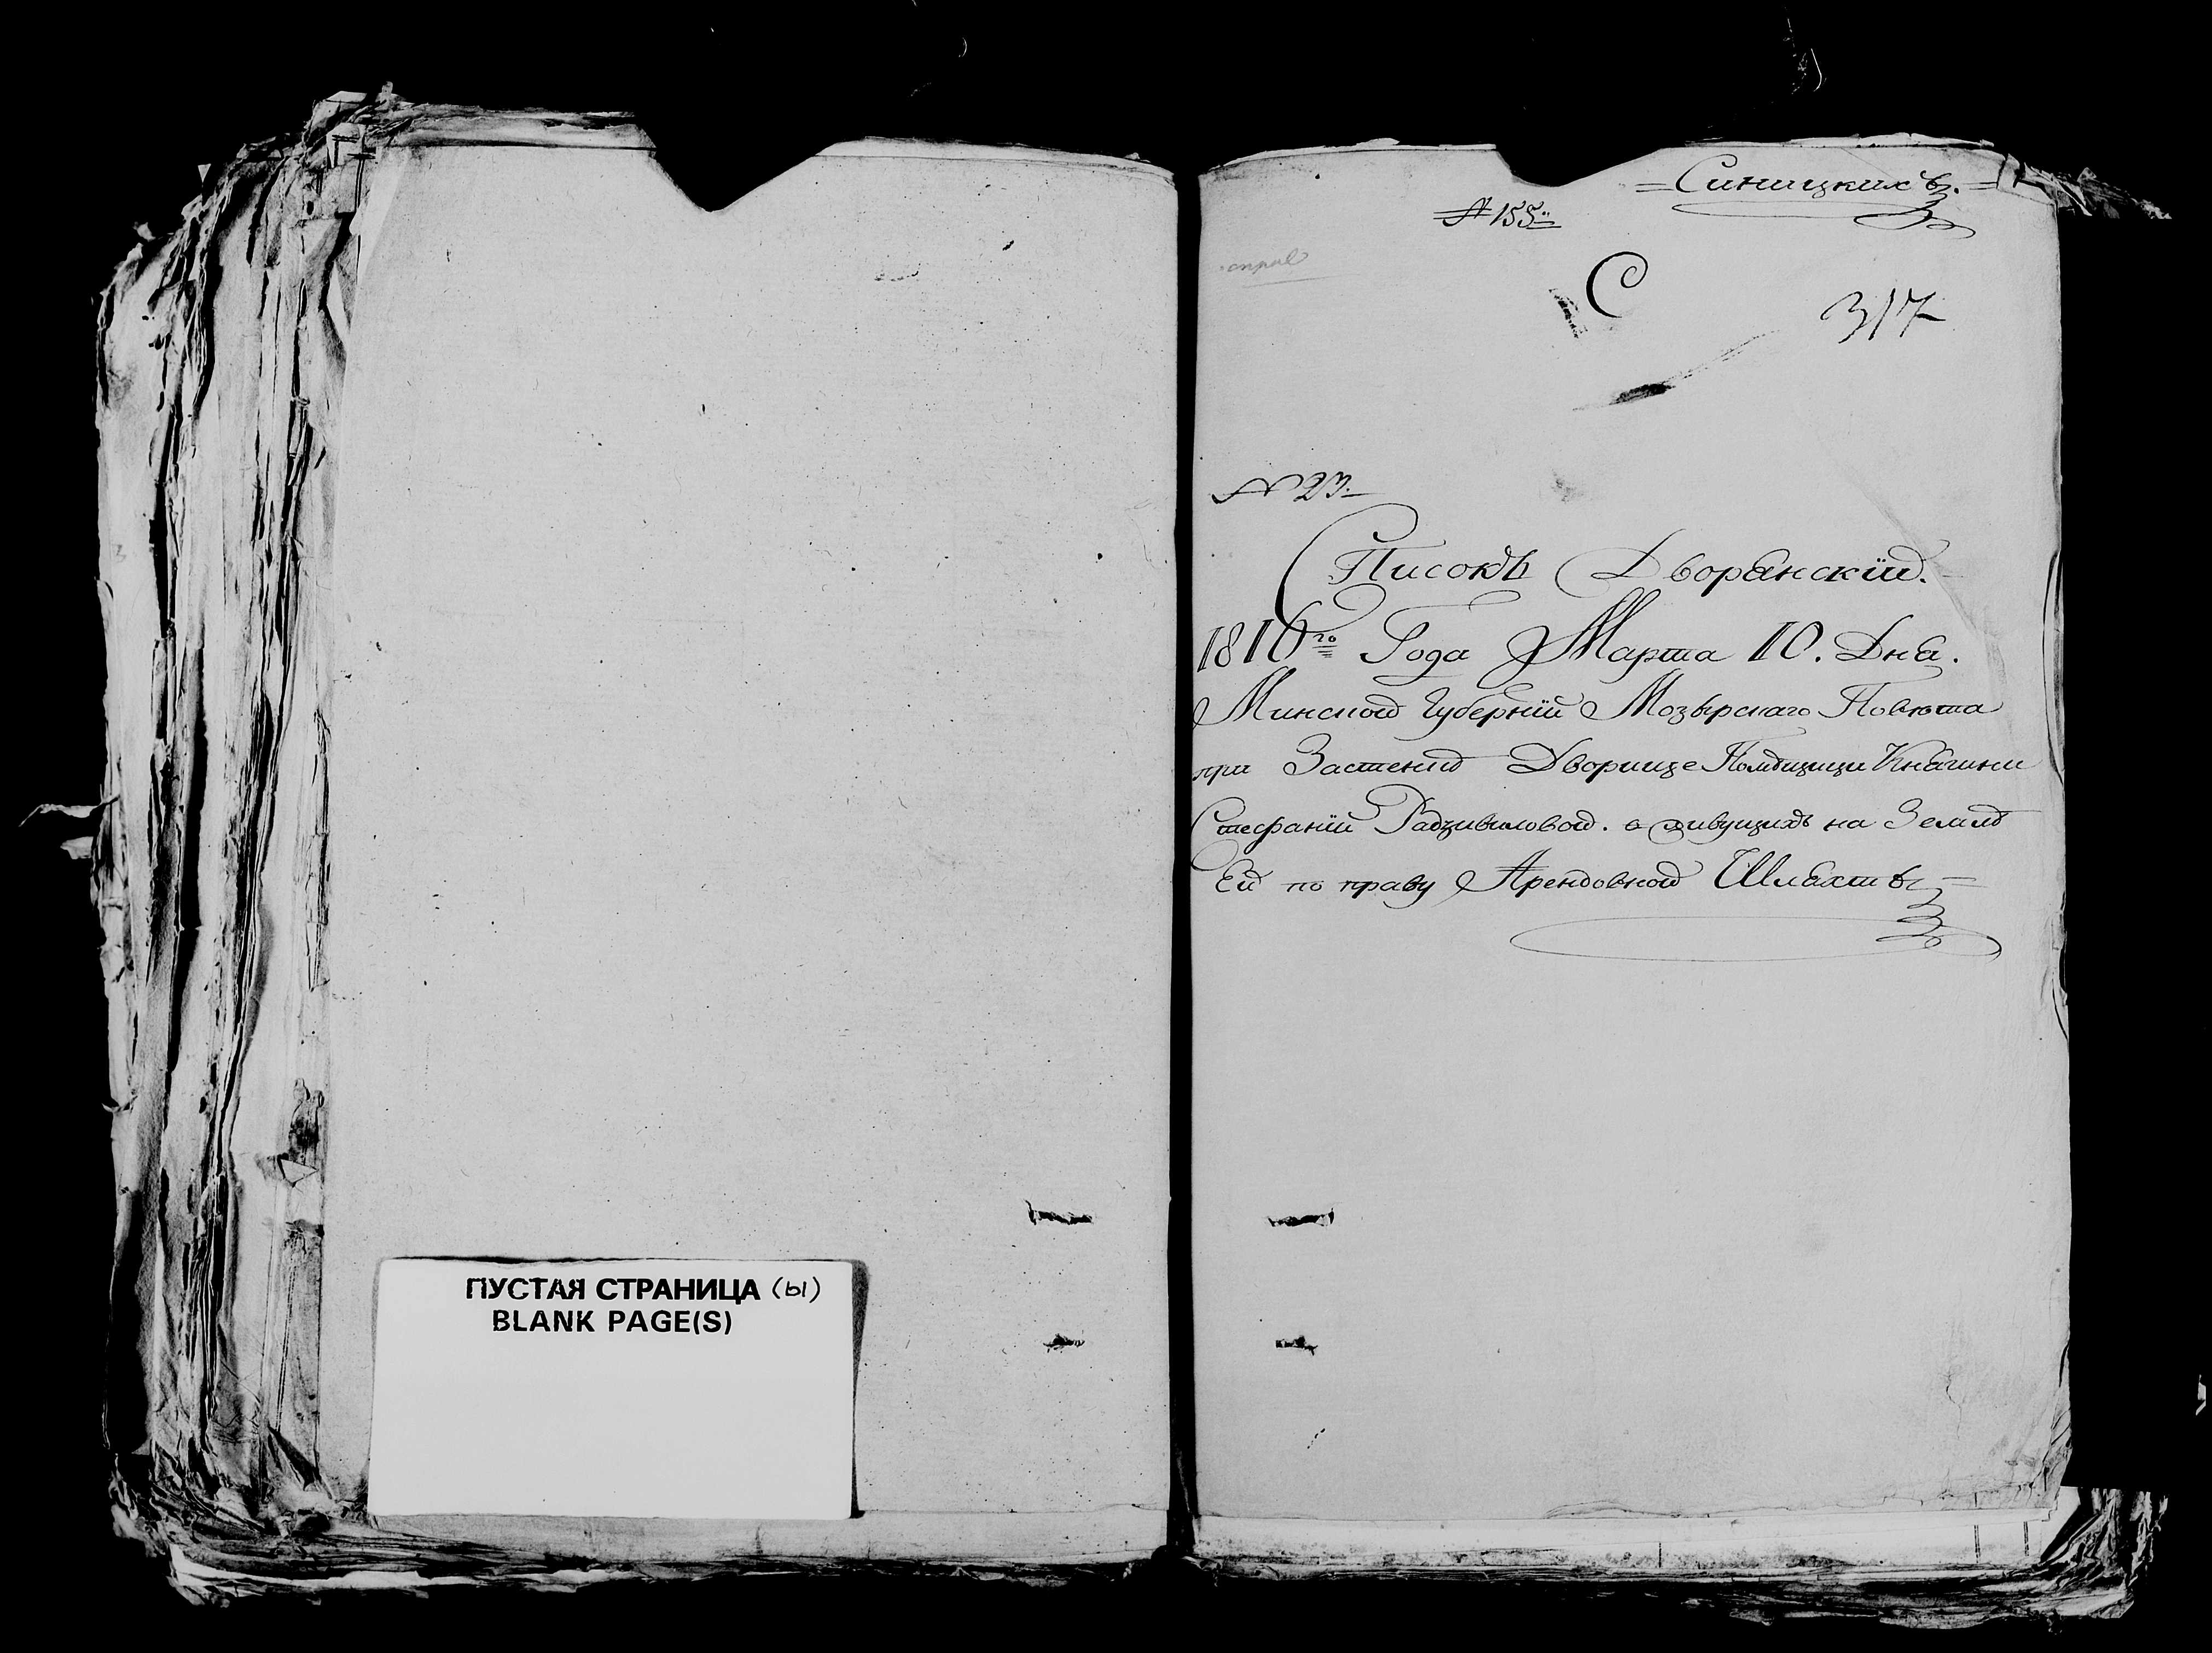 ПУСТАЯ СТРАНИЦА (ы)
BLANK PAGE(S)
= Синицкихъ. =
№ 155
С
317
№ 23.
Списокъ Дворянскій.
1816го Года Марта 10. Дня.
Минской Губерніи Мозырскаго Повѣта
при Застенкѣ Дворище Помѣщицы Княгини
Стефаніи Радзивиловой. о живущихъ на Землѣ
Ей по праву Арендовной Шляхты =